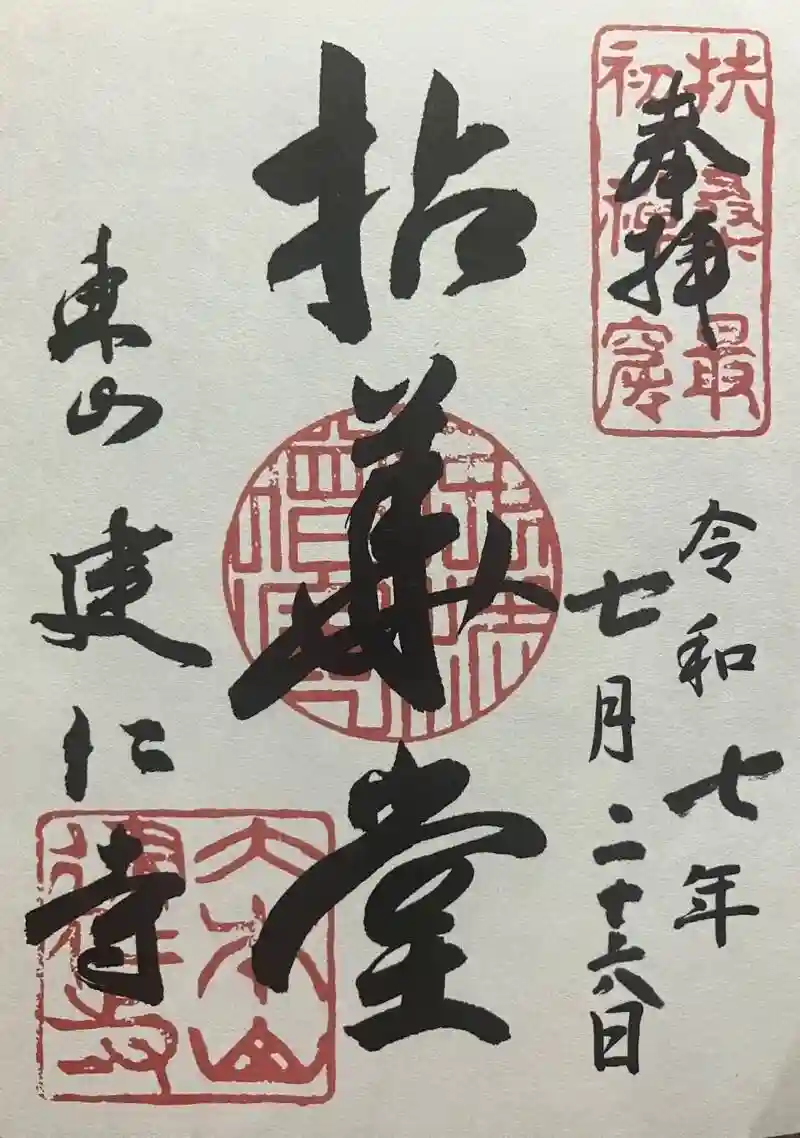 奉拝
扶桑最
初禅窟
令和七年
七月二十六日
拈華堂
東山建仁寺
大本山
建仁寺